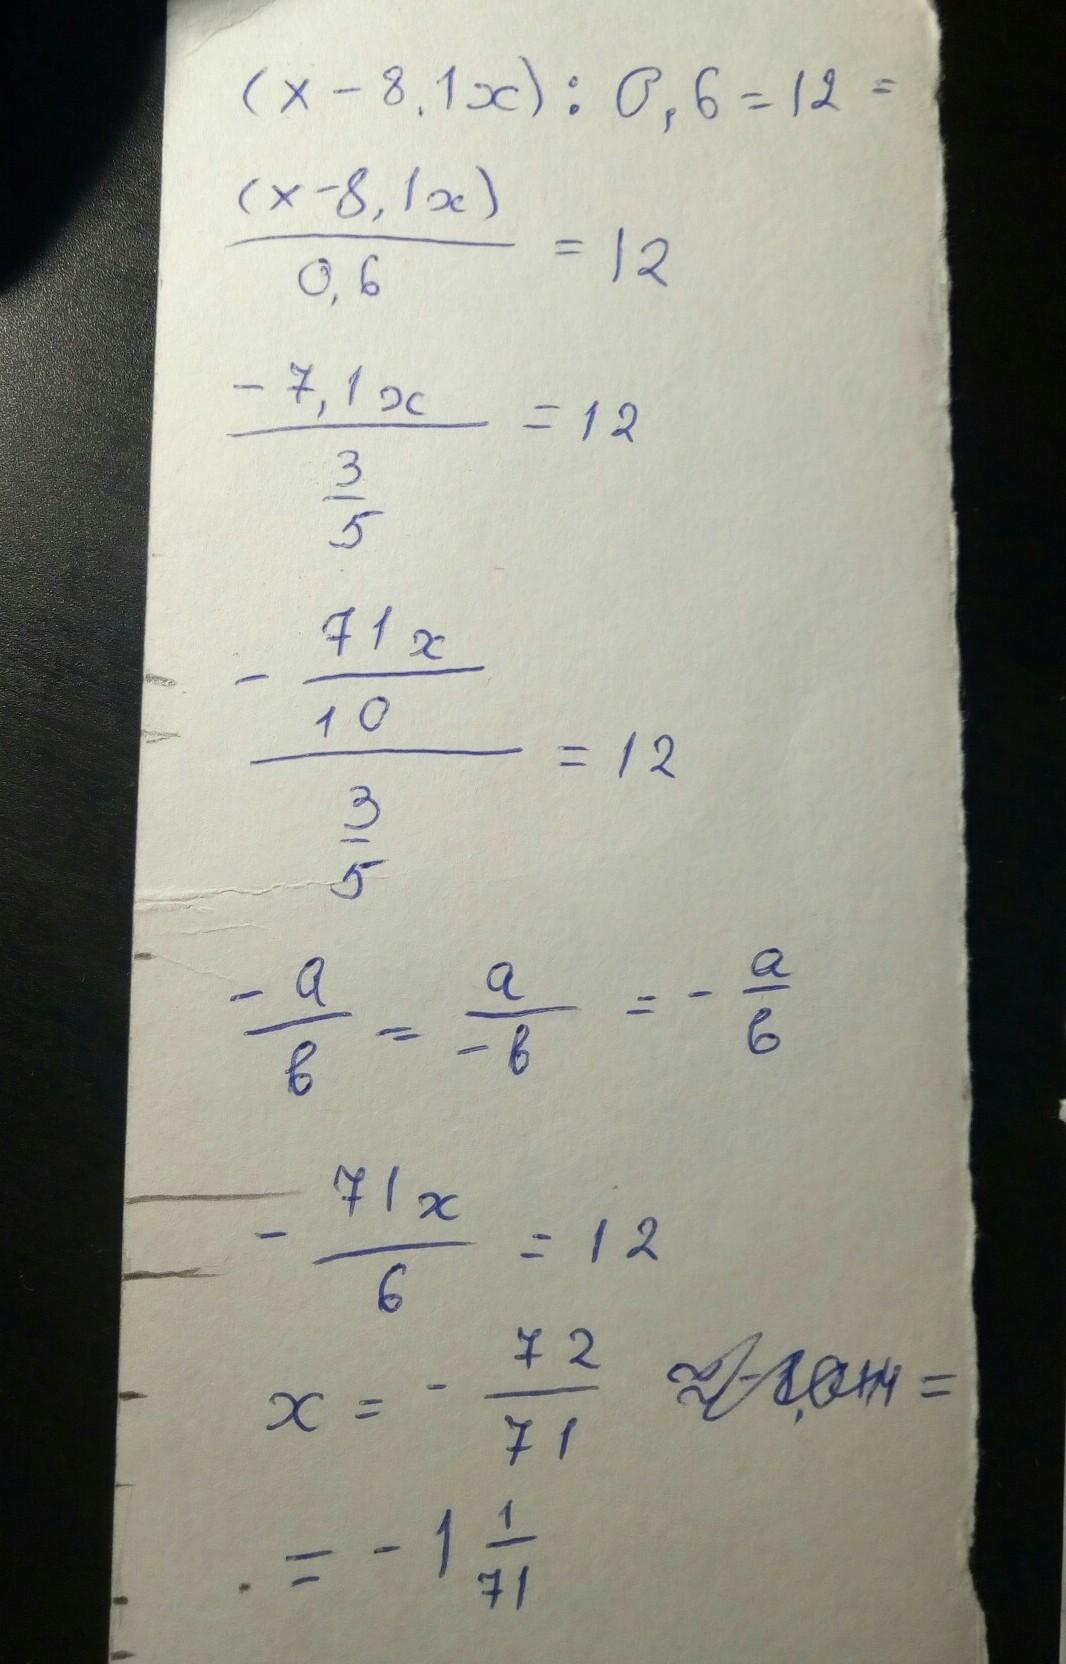 (x - 8,1x) : 0,6 = 12 =
(x - 8,1x) / 0,6 = 12
- 7,1x / 3/5 = 12
- 71x/10 / 3/5 = 12
-a/b = a/-b = - a/b
- 71x/6 = 12
x = - 72/71 =
= - 1 1/71